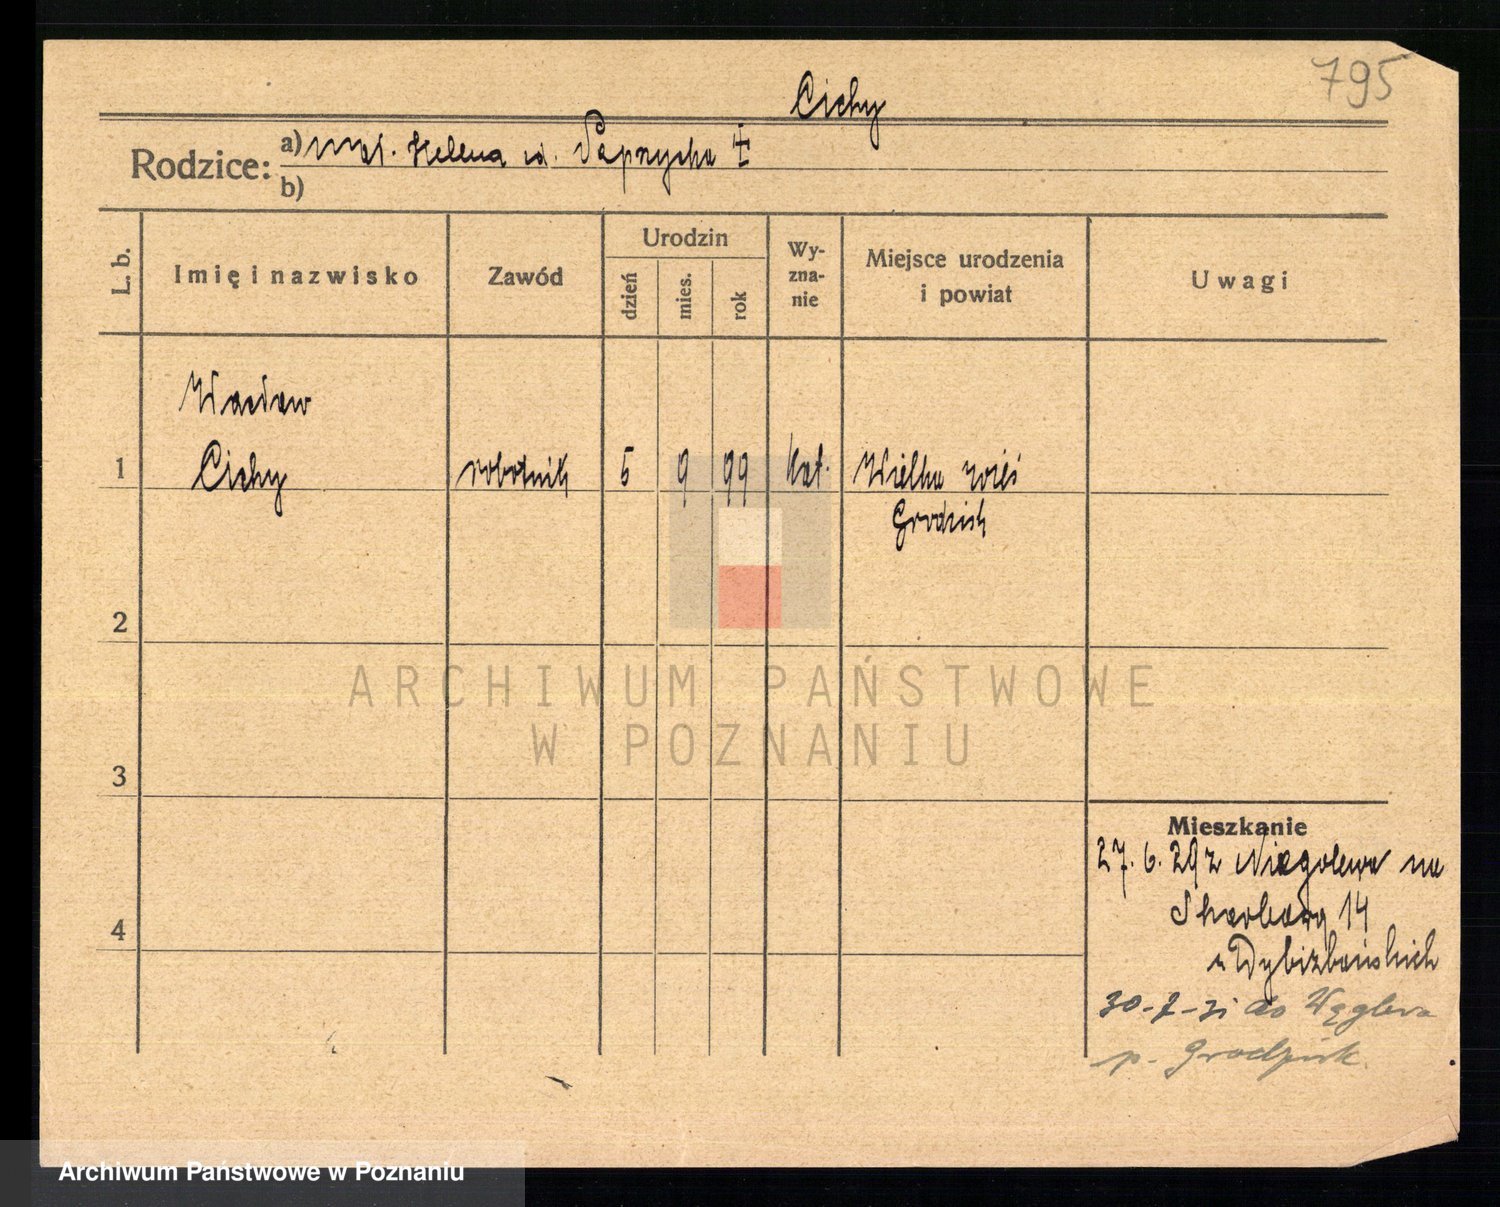 795
Cichy
Rodzice: a) Mał. Helena ur. Paprzycka
b)
L. b. Imię i nazwisko Zawód Urodzin dzień mies. rok Wy-zna-nie Miejsce urodzenia i powiat Uwagi
Wacław
1 Cichy robotnik 5 9 99 kat. Wielka wieś
Grodzisk
2
ARCHIWUM PAŃSTWOWE
W POZNANIU
3
Mieszkanie
27. 6. 29 z Niegolewa na
4 Skarbową 14
u Dybizbańskich
30-7-31 do
p. Grodzisk
Archiwum Państwowe w Poznaniu